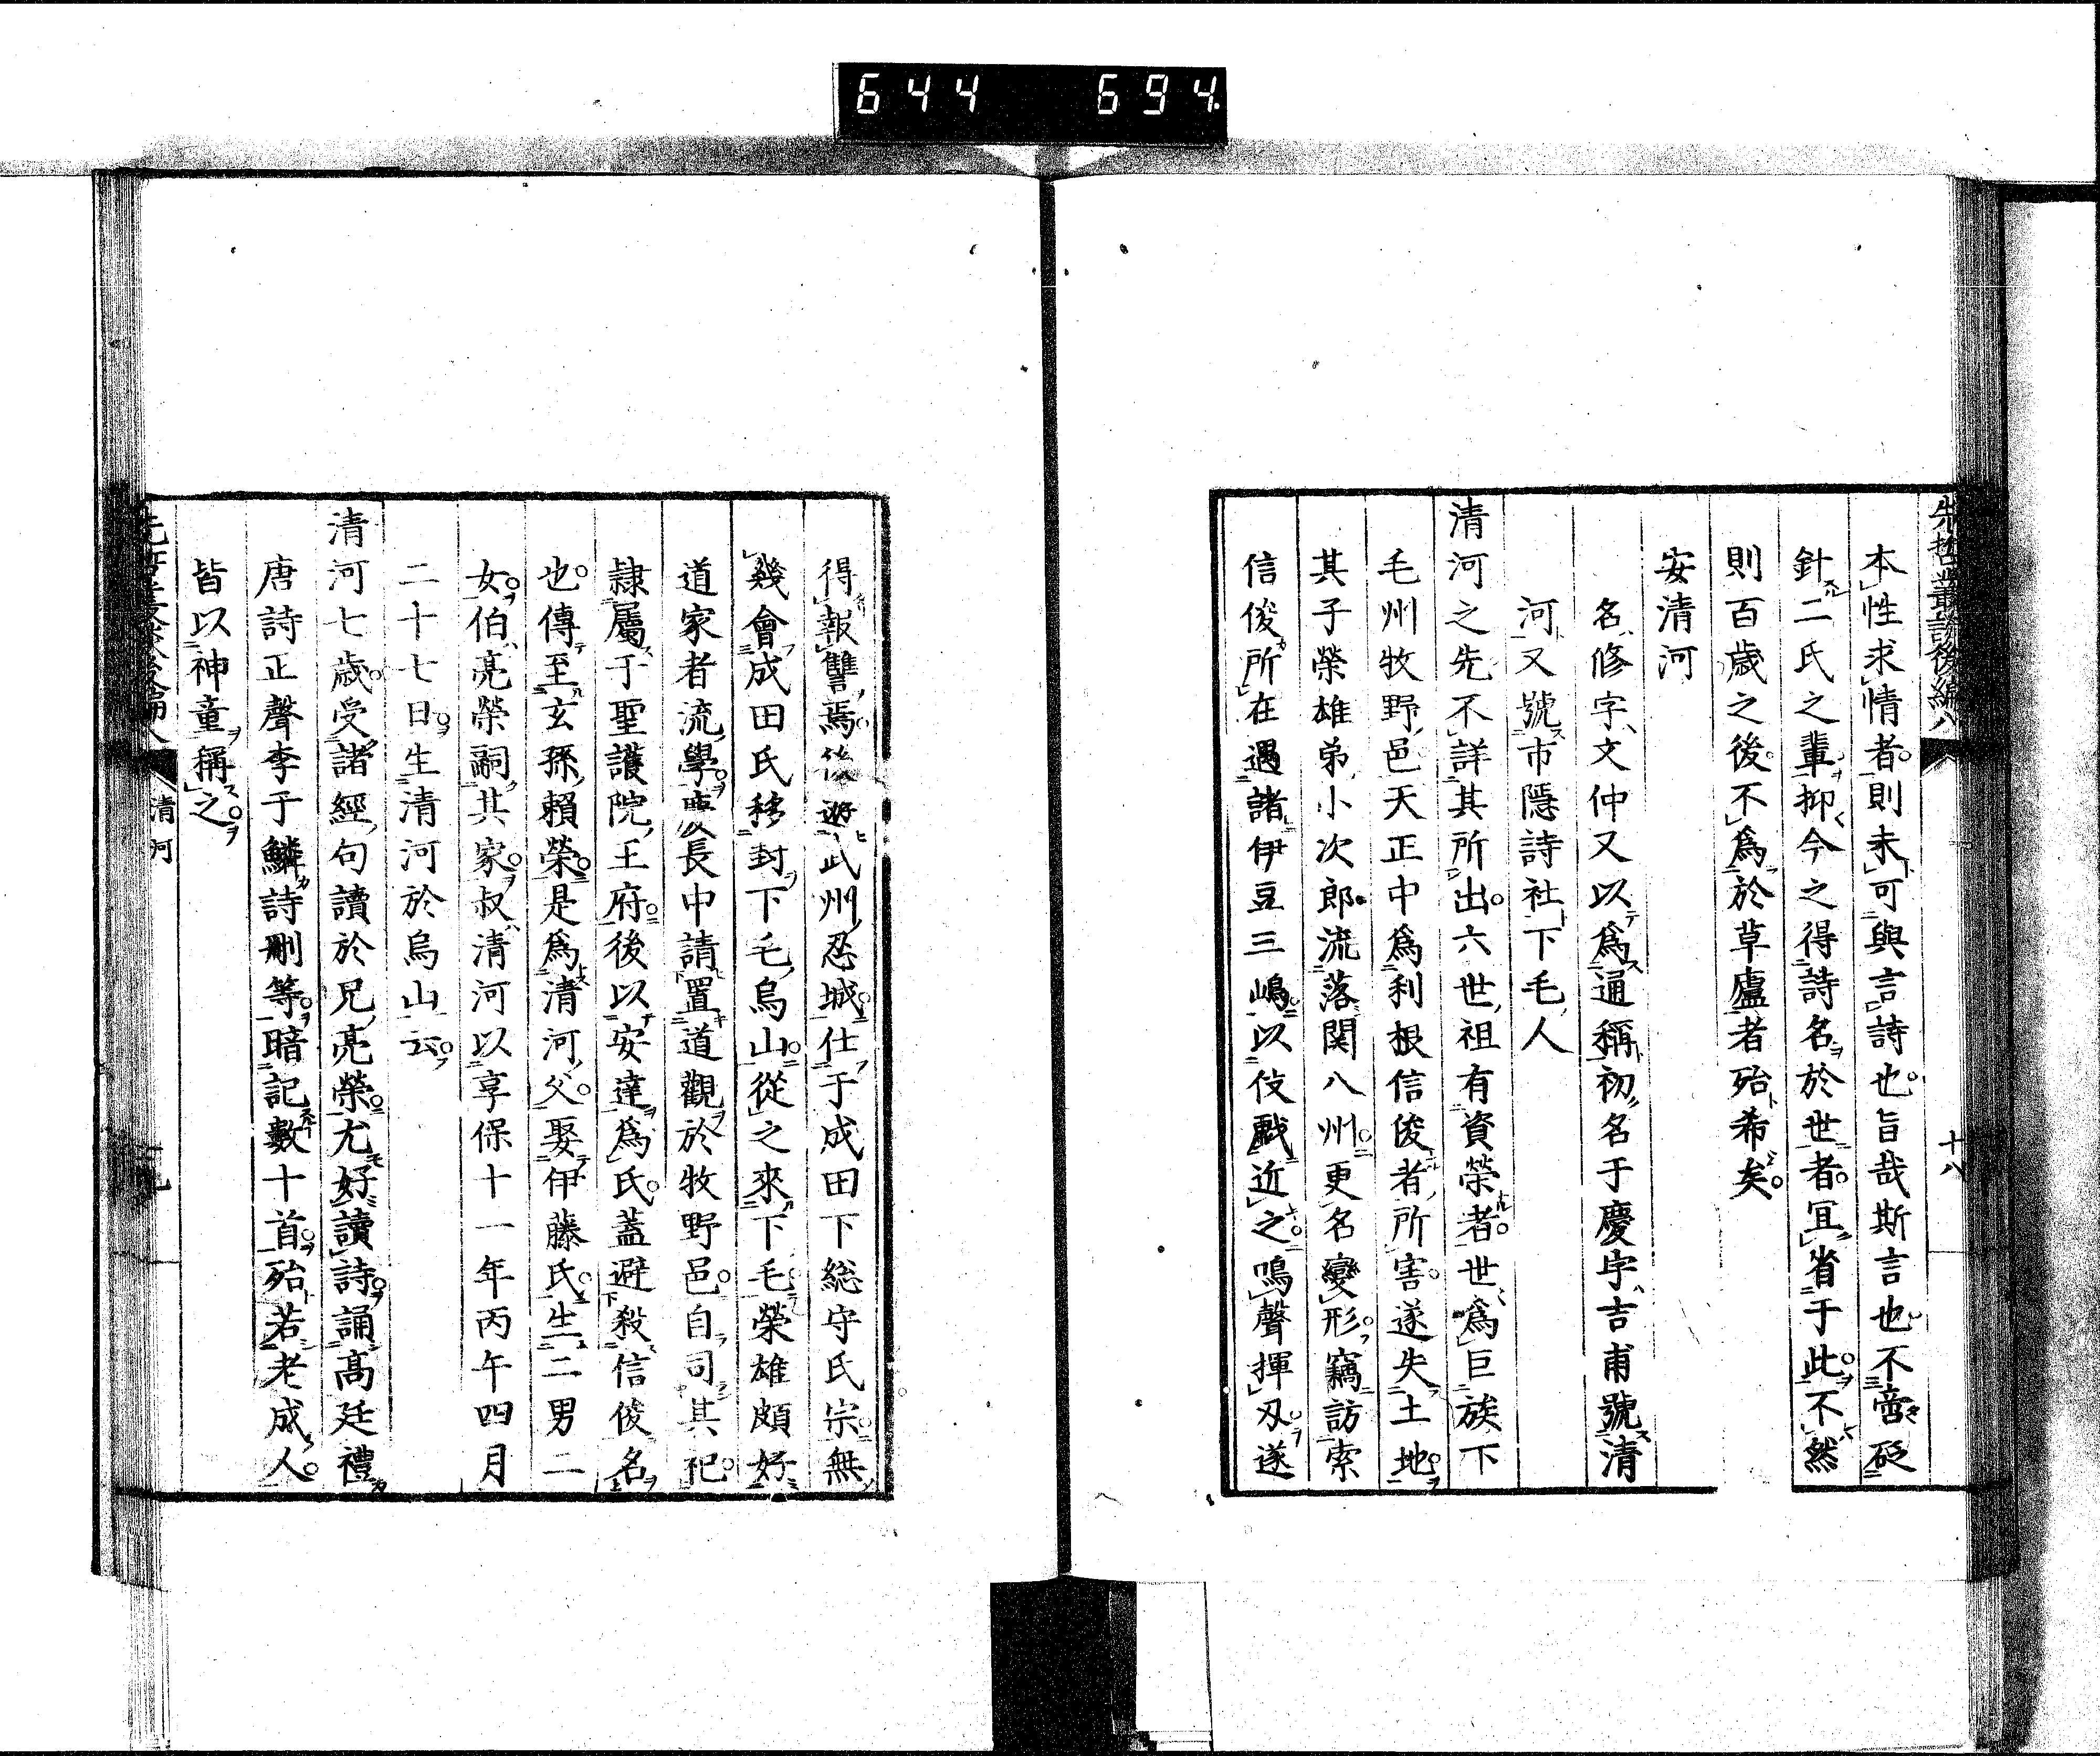 644 694
先哲叢談後編八
十八
本性求情者則未可與言詩也旨哉斯言也不啻砭
針二氏之輩抑今之得詩名於世者冝省于此不然
則百歲之後不爲於草廬者殆希矣
安清河
名修字文仲又以爲通稱初名于慶字吉甫號清
河又號市隱詩社下毛人
清河之先不詳其所出六世祖有資榮者世爲巨族下
毛州牧野邑天正中爲利根信俊者所害遂失土地
其子榮雄弟小次郎流落関八州更名變形竊訪索
信俊所在遇諸伊豆三嶋以伎戲近之鳴聲揮刄遂
得報讐焉後遊武州忍城仕于成田下総守氏宗無
幾會成田氏移封下毛烏山從之來下毛榮雄頗好
道家者流學慶長中請置道觀於牧野邑自司其祀
隷屬于聖護院王府後以安達爲氏蓋避殺信俊名
也傳至玄孫賴榮是爲清河父娶伊藤氏生二男二
女伯亮榮嗣其家叔清河以享保十一年丙午四月
二十七日生清河於烏山云
清河七歲受諸經句讀於兄亮榮尤好讀詩誦高廷禮
唐詩正聲李于鱗詩刪等暗記數十首殆若老成人
皆以神童稱之
清河